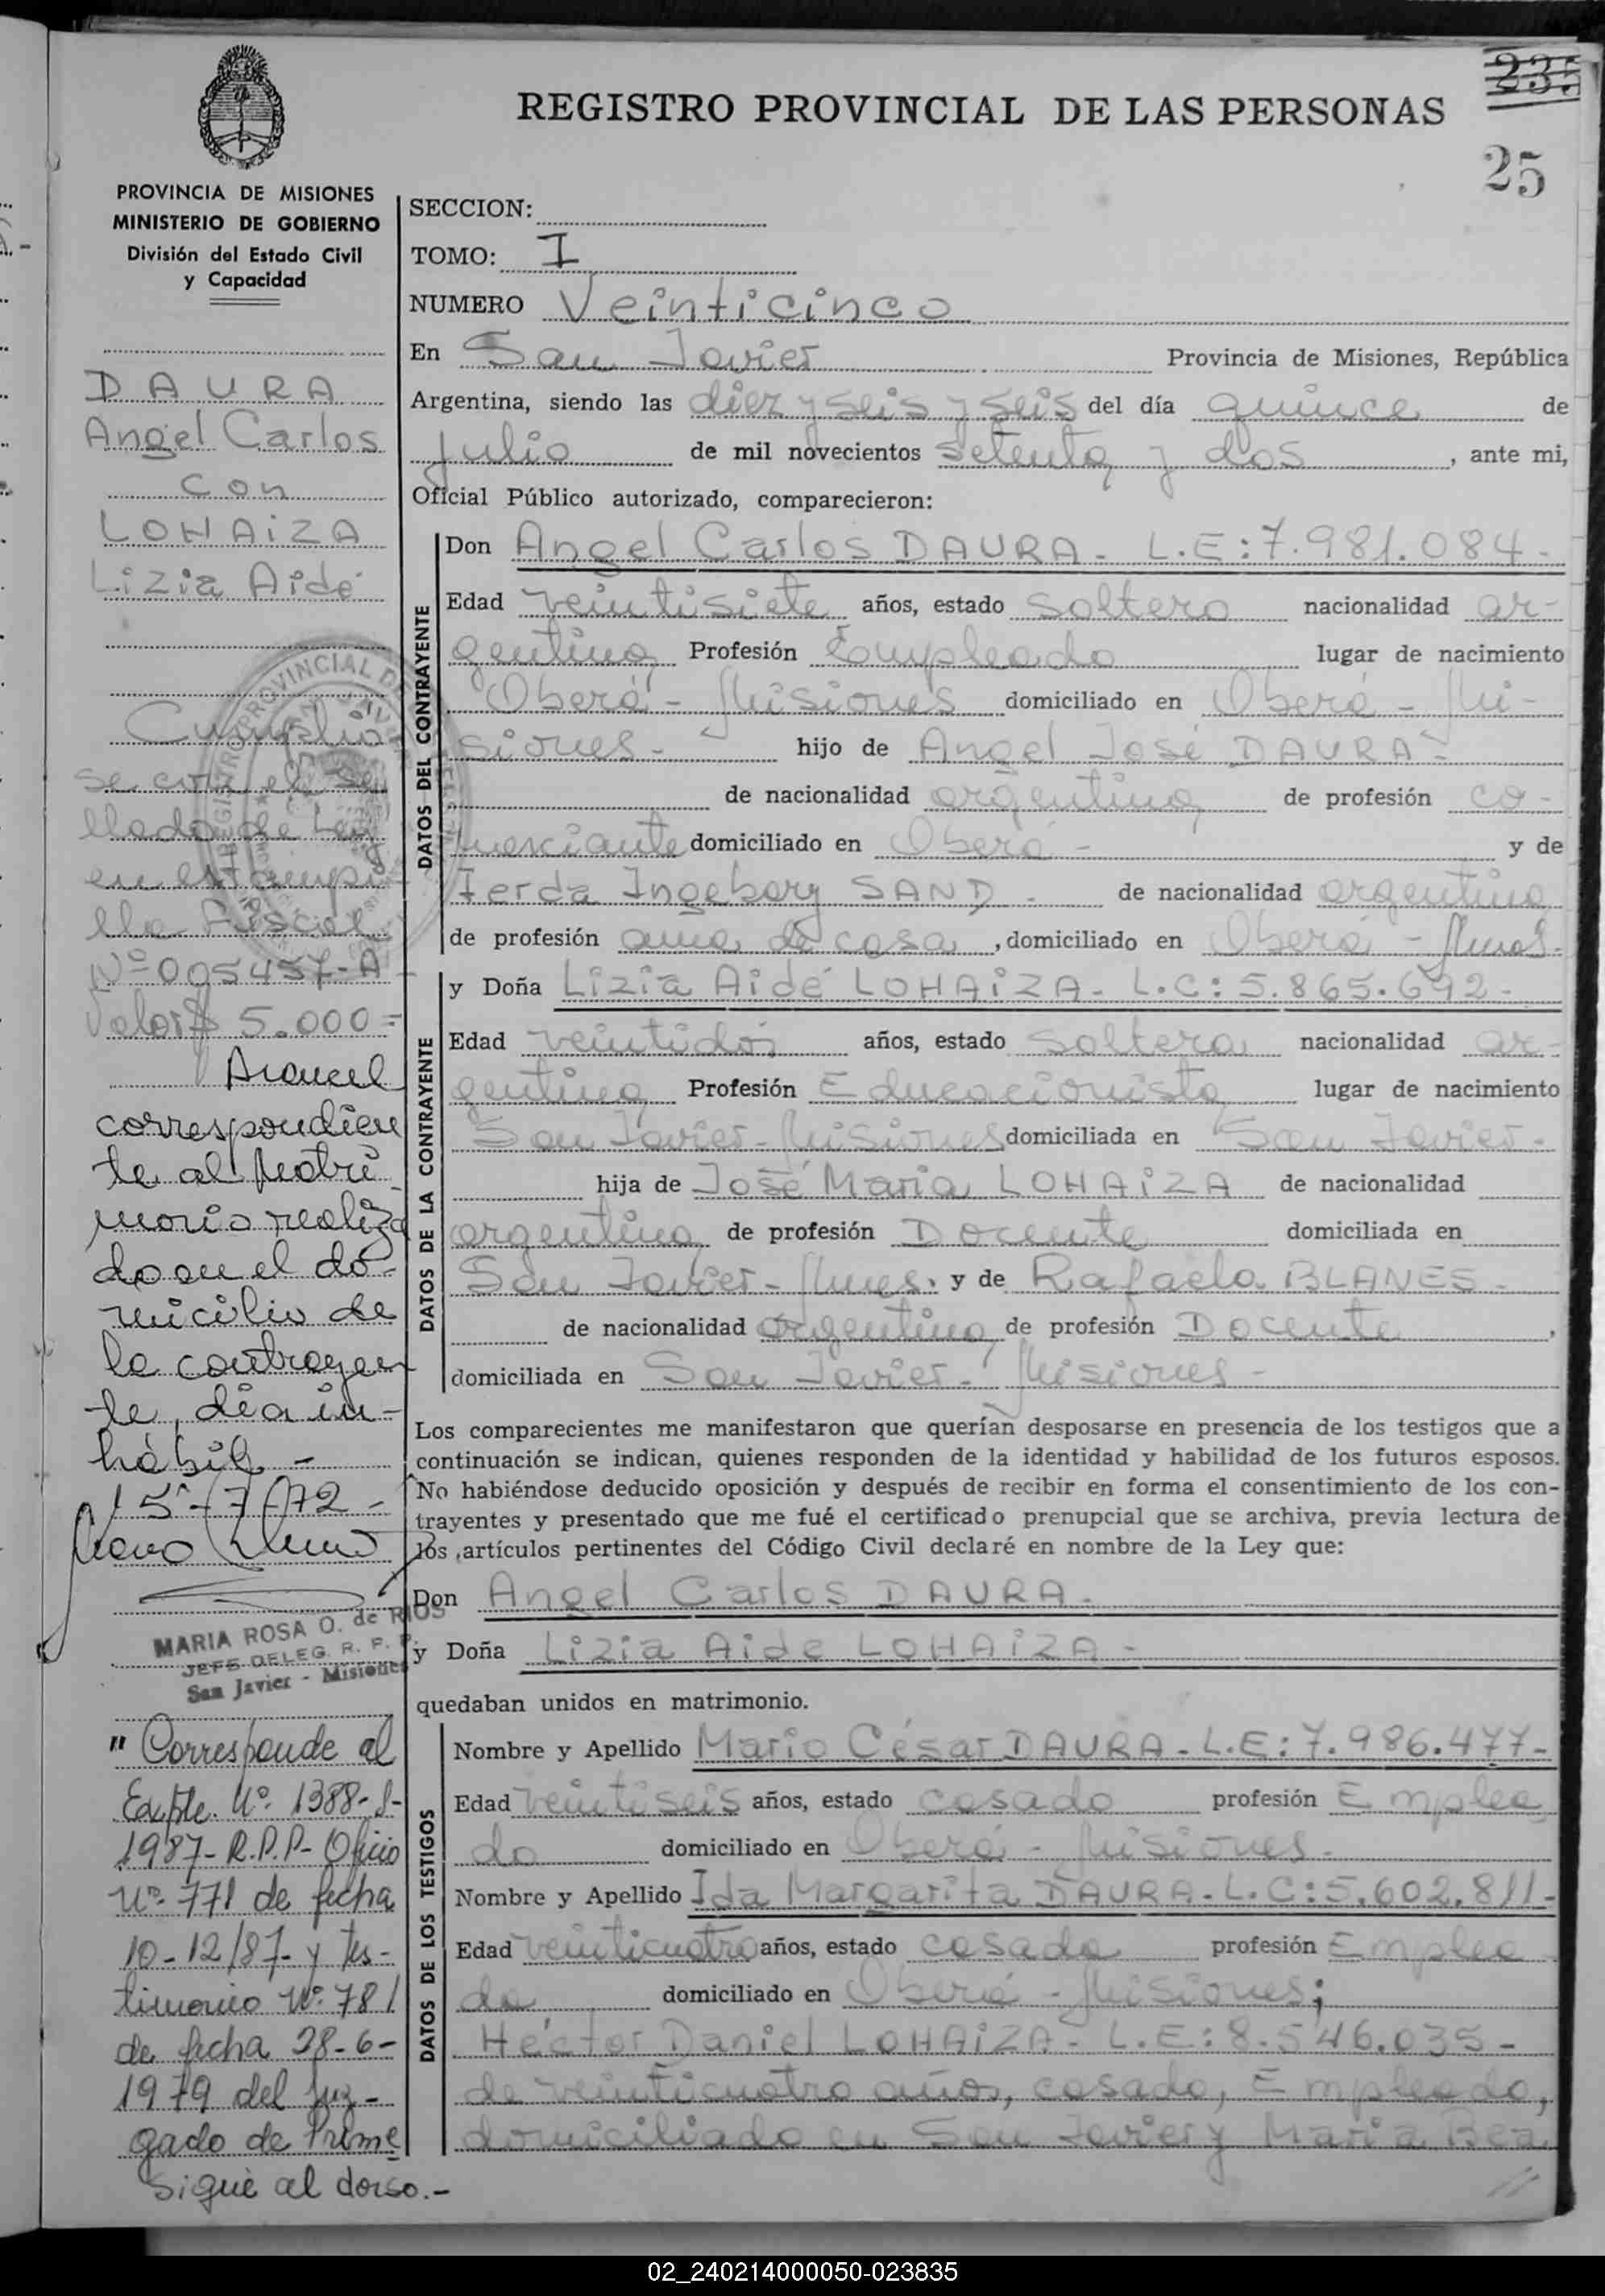 REGISTRO PROVINCIAL DE LAS PERSONAS
25
PROVINCIA DE MISIONES
MINISTERIO DE GOBIERNO
División del Estado Civil
y Capacidad
DAURA
Angel Carlos
con
LOHAiZA
Lizia Aidé
Cumplió
se con el se
llado de Ley
en estampi
lla Fiscal
Nº 005457-A
Valor $ 5.000=
Arancel
correspondien
te al Matri
monio realiza
do en el do-
micilio de
la contrayen
te, día in-
hábil -
15-7-72-
MARIA ROSA O. de RIOS
JEFE DELEG. R. P. P.
San Javier - Misiones
"Corresponde al
Expte. Nº 1388-S-
1987- R.P.P- Oficio
Nº 771 de fecha
10-12/87- y Tes-
timonio Nº 781
de fecha 28-6-
1979 del Juz-
gado de Prime
Sigue al dorso.-
SECCION:
TOMO: I
NUMERO Veinticinco
En San Javier Provincia de Misiones, República
Argentina, siendo las diez y seis y seis del día quince de
julio de mil novecientos setenta y dos, ante mi,
Oficial Público autorizado, comparecieron:
DATOS DEL CONTRAYENTE
Don Angel Carlos DAURA- L.E:7.981.084-
Edad veintisiete años, estado soltero nacionalidad ar-
gentina Profesión Empleado lugar de nacimiento
Oberá - Misiones domiciliado en Oberá - Mi-
siones- hijo de Angel José DAURA-
de nacionalidad argentina de profesión co-
merciante domiciliado en Oberá - y de
Ingeborg SAND- de nacionalidad argentina
de profesión ama de casa, domiciliado en Oberá - Mnes.
DATOS DE LA CONTRAYENTE
y Doña Lizia Aidé LOHAiZA- L.C: 5.865.692-
Edad veintidós años, estado soltera nacionalidad ar-
gentina Profesión Educacionista lugar de nacimiento
San Javier-Misiones domiciliada en San Javier-
hija de José Maria LOHAiZA de nacionalidad
argentina de profesión Docente domiciliada en
San Javier-Mnes. y de Rafaela BLANES-
de nacionalidad argentina de profesión Docente,
domiciliada en San Javier- Misiones -
Los comparecientes me manifestaron que querían desposarse en presencia de los testigos que a
continuación se indican, quienes responden de la identidad y habilidad de los futuros esposos.
No habiéndose deducido oposición y después de recibir en forma el consentimiento de los con-
trayentes y presentado que me fué el certificado prenupcial que se archiva, previa lectura de
los artículos pertinentes del Código Civil declaré en nombre de la Ley que:
Don Angel Carlos DAURA-
y Doña Lizia Aide LOHAiZA-
quedaban unidos en matrimonio.
DATOS DE LOS TESTIGOS
Nombre y Apellido Mario César DAURA-L.E:7.986.477-
Edad veintiseis años, estado casado profesión Emplea
do domiciliado en Oberá - Misiones-
Nombre y Apellido Ida Margarita DAURA-L.C:5.602.811-
Edad veinticuatro años, estado casada profesión Emplea
da domiciliado en Oberá - Misiones;
Héctor Daniel LOHAiZA- L.E:8.546.035-
de veinticuatro años, casado, Empleado,
domiciliado en San Javier y Maria Bea
02_240214000050-023835